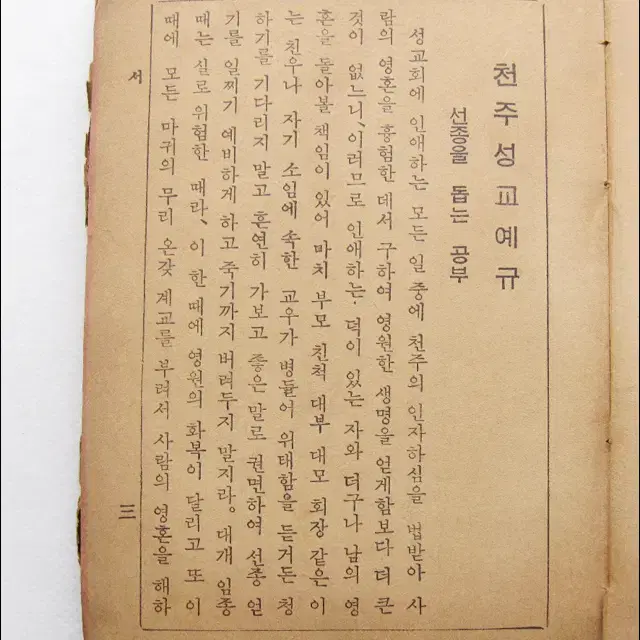 천주성교예규
선종을 돕는 공부
성교회에 인애하는 모든 일 중에 천주의 인자하심을 법받아 사
람의 영혼을 흉험한 데서 구하여 영원한 생명을 얻게함보다 더 큰
것이 없느니、이러므로 인애하는 덕이 있는 자와 더구나 남의 영
혼을 돌아볼 책임이 있어 마치 부모 친척 대부 대모 회장 같은 이
는 친우나 자기 소임에 속한 교우가 병들어 위태함을 듣거든 청
하기를 기다리지 말고 흔연히 가보고 좋은 말로 권면하여 선종 얻
기를 일찌기 예비하게 하고 죽기까지 버려두지 말지라。대개 임종
때는 실로 위험한 때라、이 한 때에 영원의 화복이 달리고 또 이
때에 모든 마귀의 무리 온갖 계교를 부려서 사람의 영혼을 해하
서
三